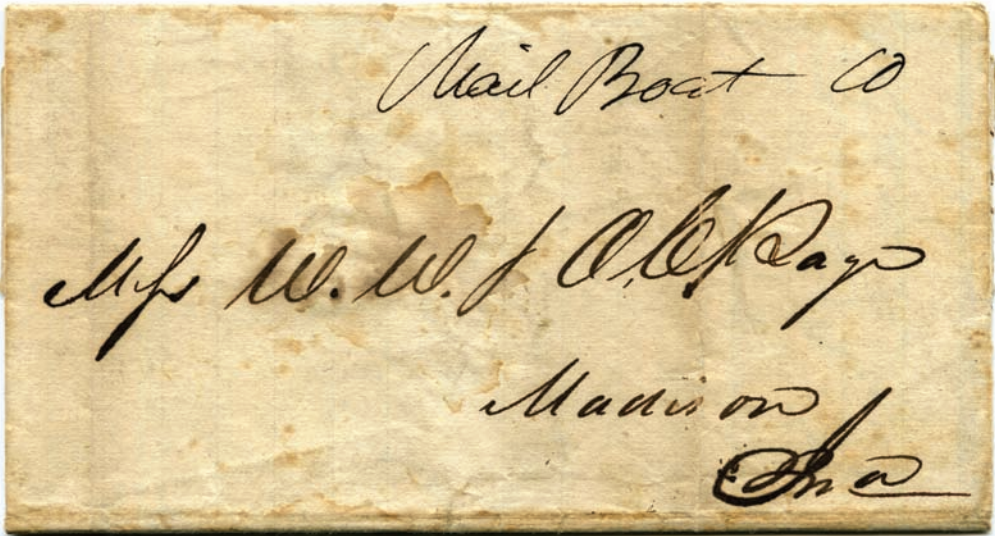 Mail Boat Co
Mess W. W. & O. C. Page
Madison
Ina